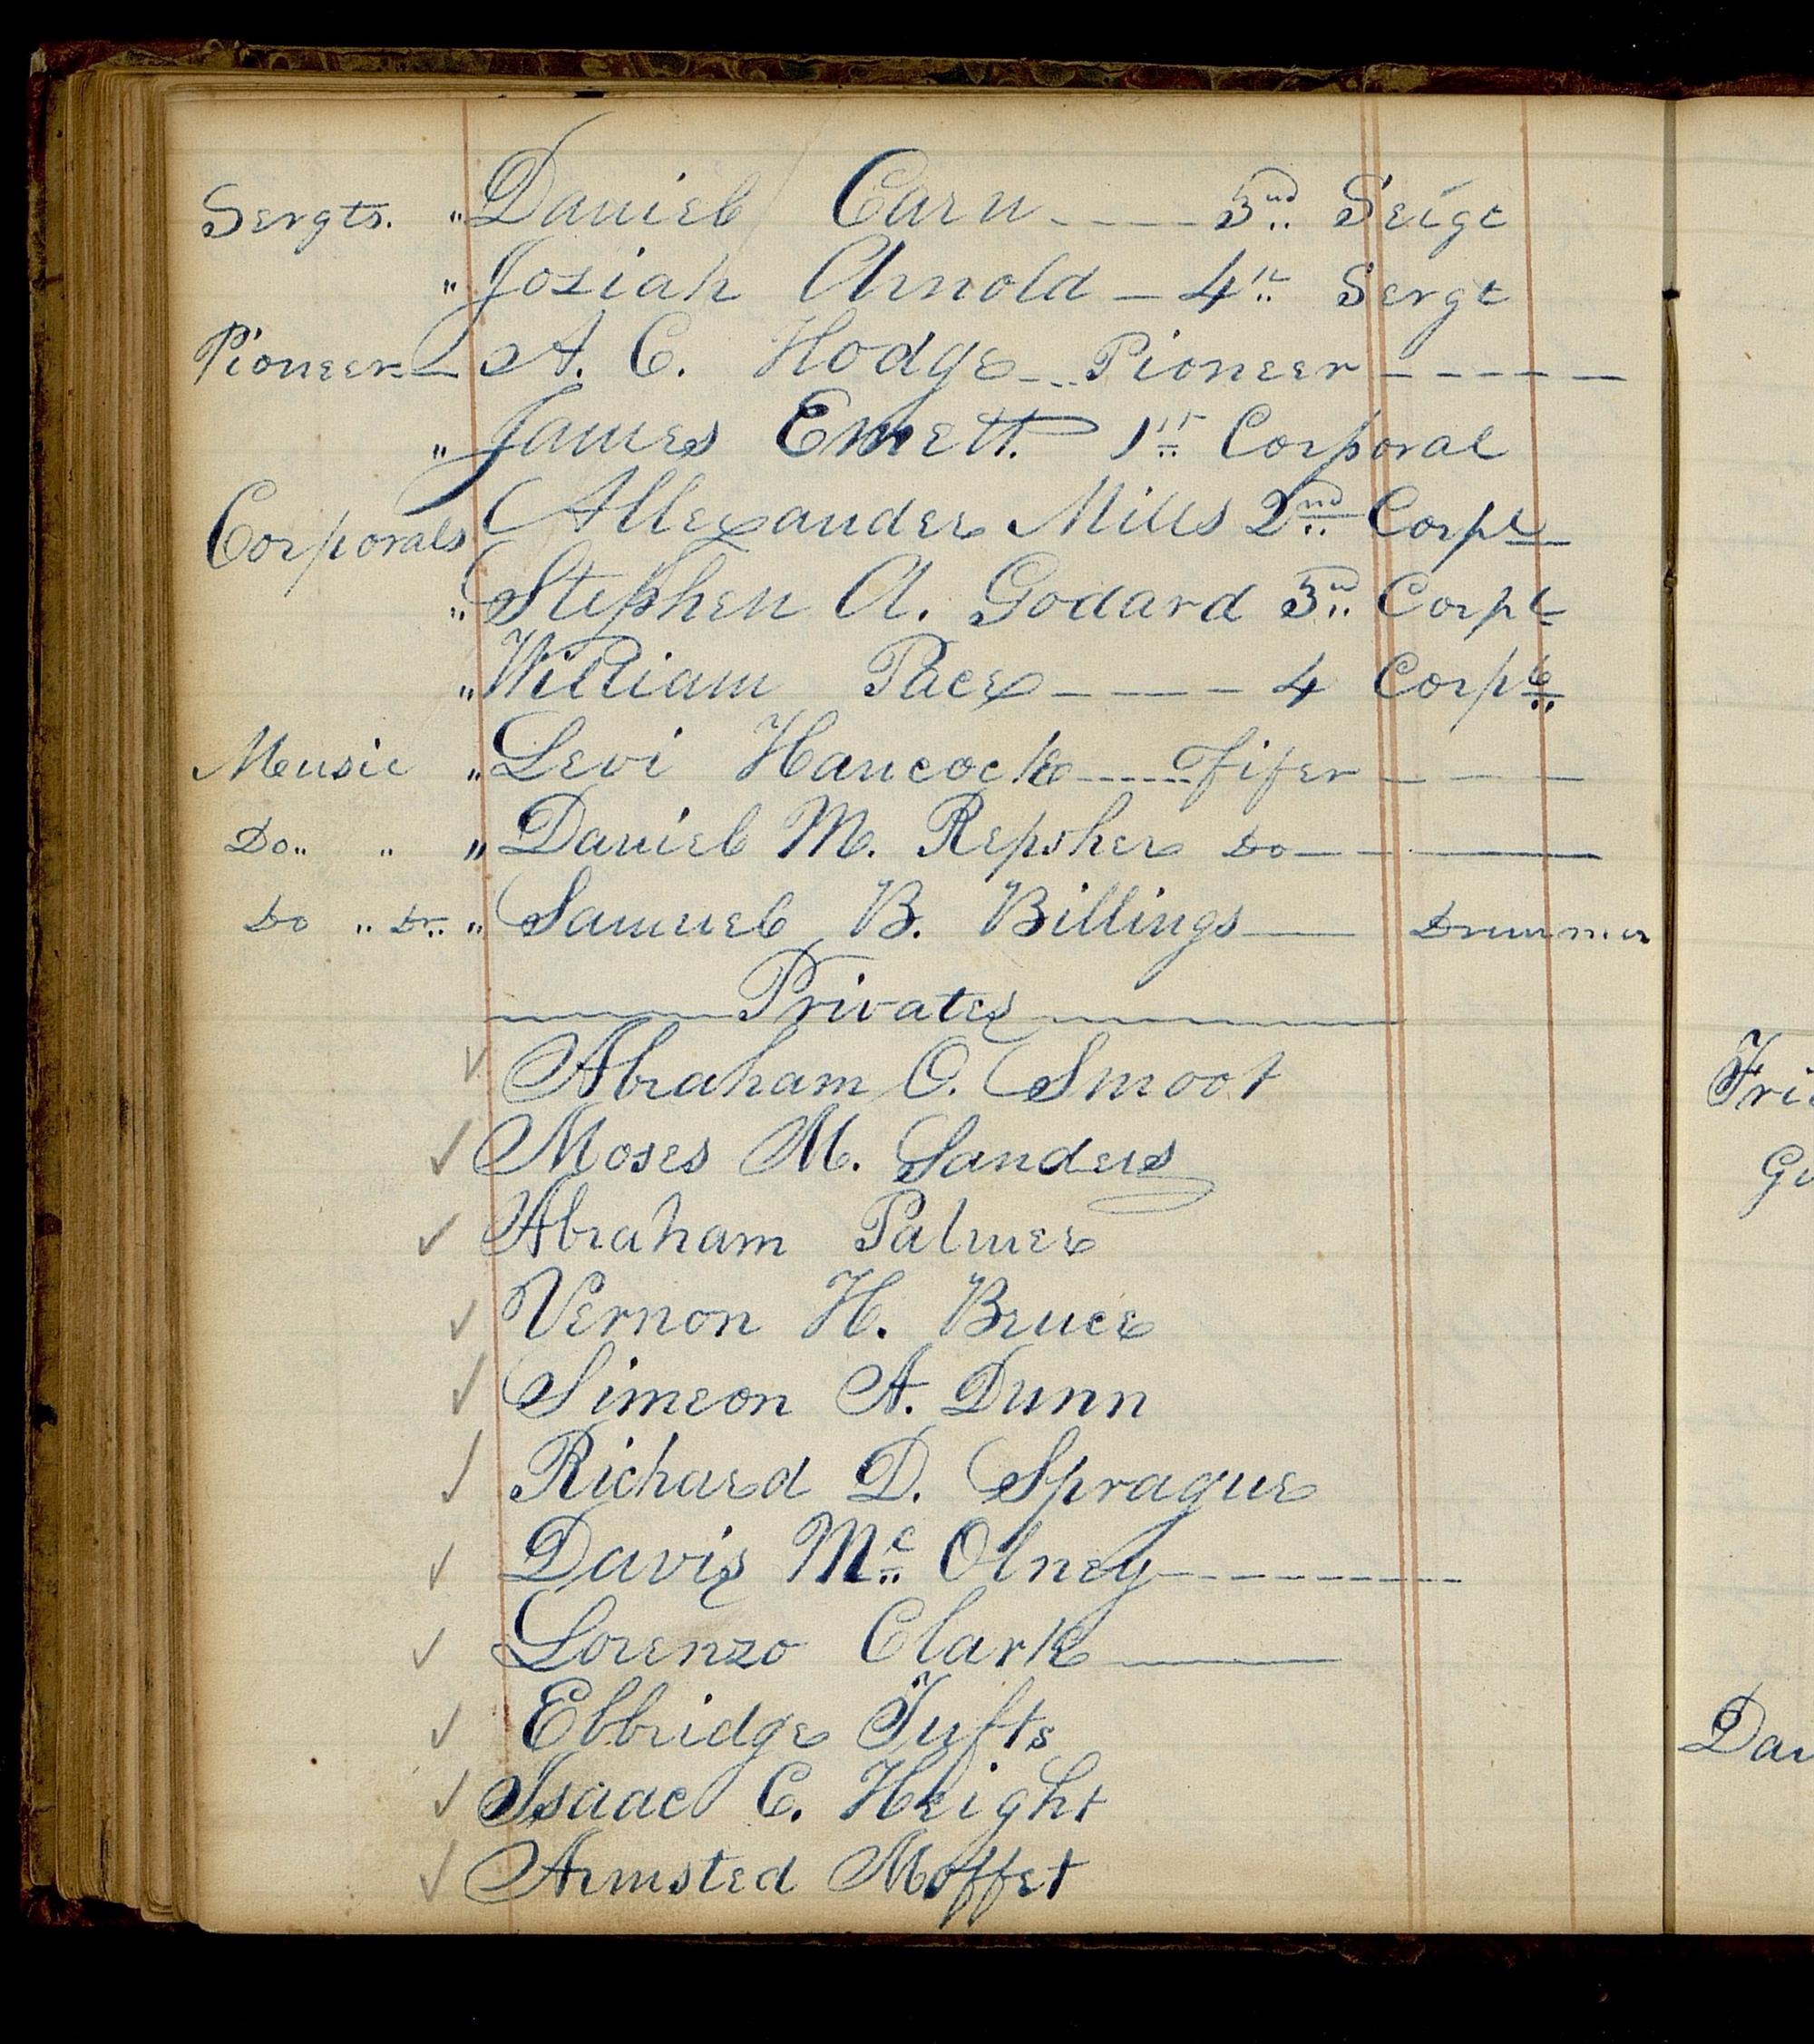 Sergts. " Daniel Carn 3rd Sergt
" Josiah Arnold 4th Sergt
Pioneer A. C. Hodge Pioneer
" James Emett. 1st Corporal
Corporals Allexander Mills 2nd Corpl
" Stephen A. Godard 3rd Corpl
" William Pace 4 Corpl
Music " Levi Hancock Fifer
Do " " Daniel M. Repsher Do
Do " Dr. " Samuel B. Billings Drummer
Privates
✓ Abraham O. Smoot
✓ Moses M. Sanders
✓ Abraham Palmer
✓ Vernon H. Bruce
✓ Simeon A. Dunn
✓ Richard D. Sprague
✓ Davis Mc Olney
✓ Lorenzo Clark
✓ Elbridge Tufts
✓ Isaac C. Height
✓ Armsted Moffet
Fri
Dav